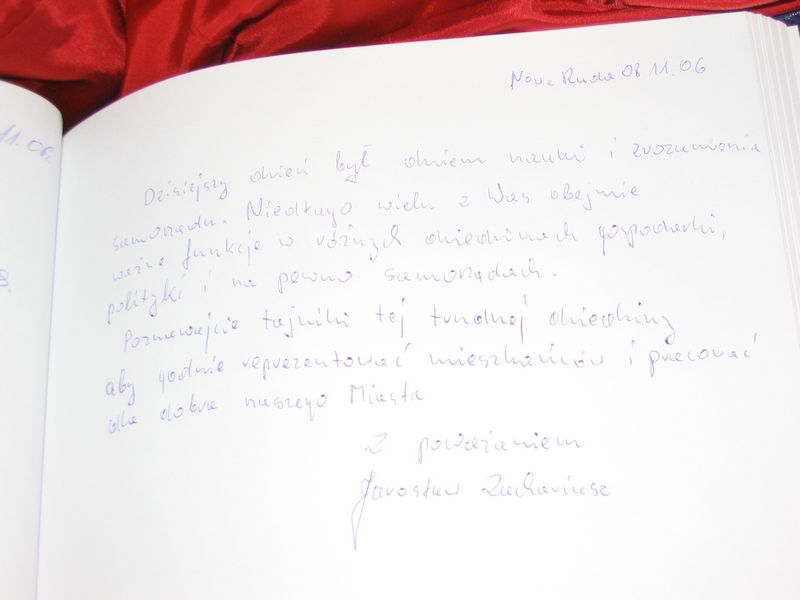 11.06.
Nowa Ruda 08 11.06
Dzisiejszy dzień był dniem nauki i zrozumienia
samorządu. Niedługo wielu z Was obejmie
ważne funkcje w różnych dziedzinach gospodarki,
polityki i na pewno samorządach.
Poznawajcie tajniki tej trudnej dziedziny
aby godnie reprezentować mieszkańców i pracować
dla dobra naszego Miasta
Z poważaniem
Jarosław Zachariasz